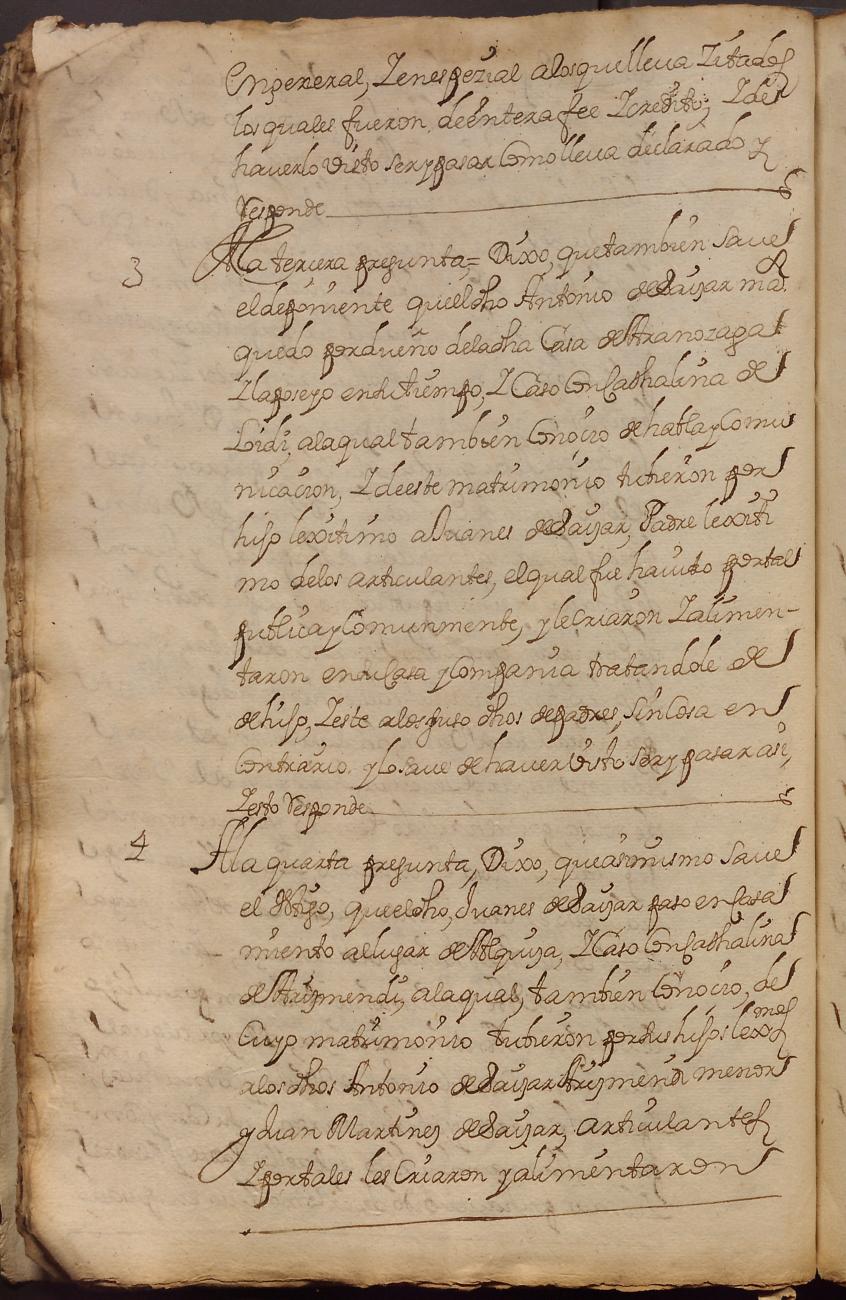 En general, Y en espezial a los que lleva Zitados
los quales fueron de entera fee Y credito; Y de
haverlo visto ser y pasar Como lleva declarado y
Responde
3 A la tercera pregunta = Dixo, que tambien save
el deponiente que el dho Antonio de Sauyar maor
quedo por dueño de la dha Casa de Aranozaga
Y la poseyo en su tiempo, Y Caso Con Cathalina de
Lidi, a la qual tambien Conocio de habla y Comu
nicacion, Y de este matrimonio tubieron por
hijo lexitimo a Juanes de Sauyar, Padre lexiti
mo de los articulantes, el qual fue havido por tal
publica y Comunmente, y le Criaron Y alimen-
taron en su Casa y Compania tratandole de
de hijo, Y este a los suso dhos de padres, sin Cosa en
Contrario y lo save de haver visto ser y pasar asi,
Y esto Responde
4 A la quarta pregunta, Dixo, que asimismo save
el testigo, que el dho, Juanes de Sauyar paso en Casa
miento al lugar de Alquiza, Y Caso Con Cathalina
de Arizmendi, a la qual, tambien Conocio, de
Cuyo matrimonio tubieron por sus hijos lexmos
a los dhos Antonio de Sauyar Arizmendi menor
y Juan Martinez de Sauyar, articulantes
Y por tales les Criaron y alimentaron